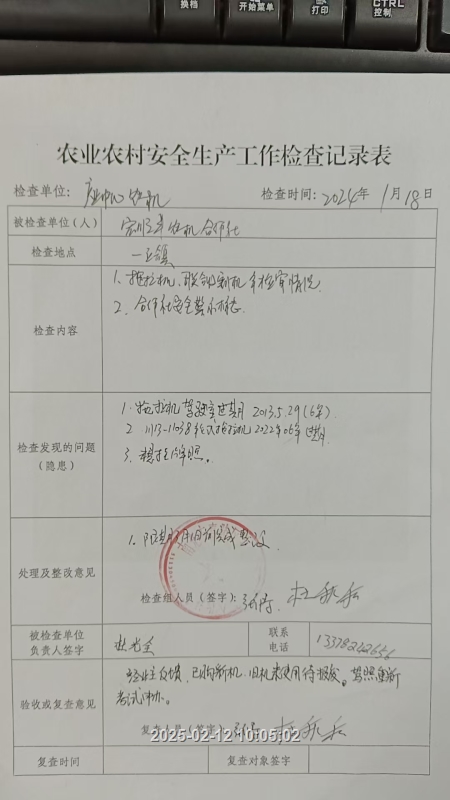 换档
开始菜单
打印
CTRL
控制
农业农村安全生产工作检查记录表
检查单位: 农机
检查时间: 2024年 1月18日
被检查单位(人) 农机合作社
检查地点 一正镇
检查内容
1. 拖拉机、联合收割机年检审情况
2. 合作社安全警示标志
检查发现的问题
(隐患)
1. 拖拉机驾驶室过期 2013.5.29(6年).
2 1113-11038 轮式拖拉机2022年06年过期
3. 年照。
处理及整改意见
1. 限期3月1日前完成整改
检查组人员(签字):
被检查单位
负责人签字
联系
电话
验收或复查意见
经业主反馈,已购新机,旧机未使用待报废。驾照重新
考试中办。
复查人员(签字)
2025-02-12 10:05:02
复查时间
复查对象签字